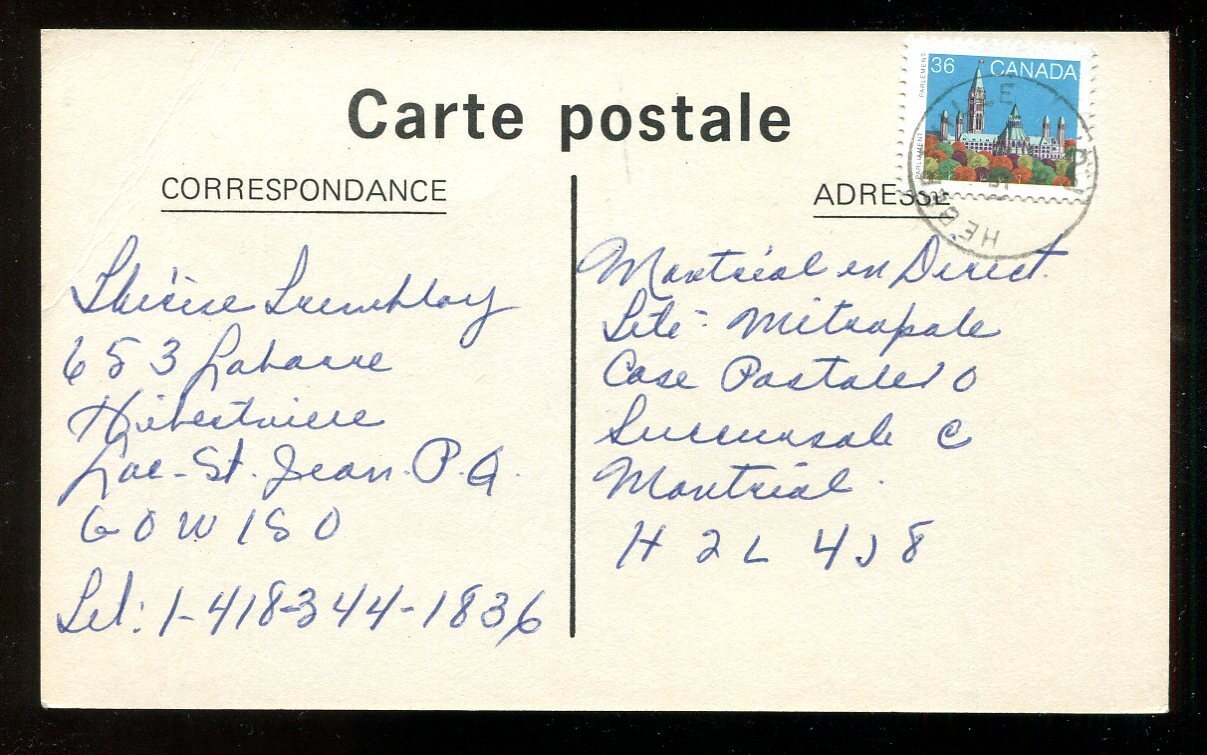 Carte postale
PARLEMENT
36 CANADA
PARLIAMENT
CORRESPONDANCE
ADRESSE
HEBERTVILLE
Thérèse Tremblay
653 Labarre
Hébertville
Lac-St. Jean. P.Q.
G0W 1S0
Tel: 1-418-344-1836
Montréal en Direct.
Télé-Métropole
Case Postale
Succursale C
Montréal.
H2L 4J8